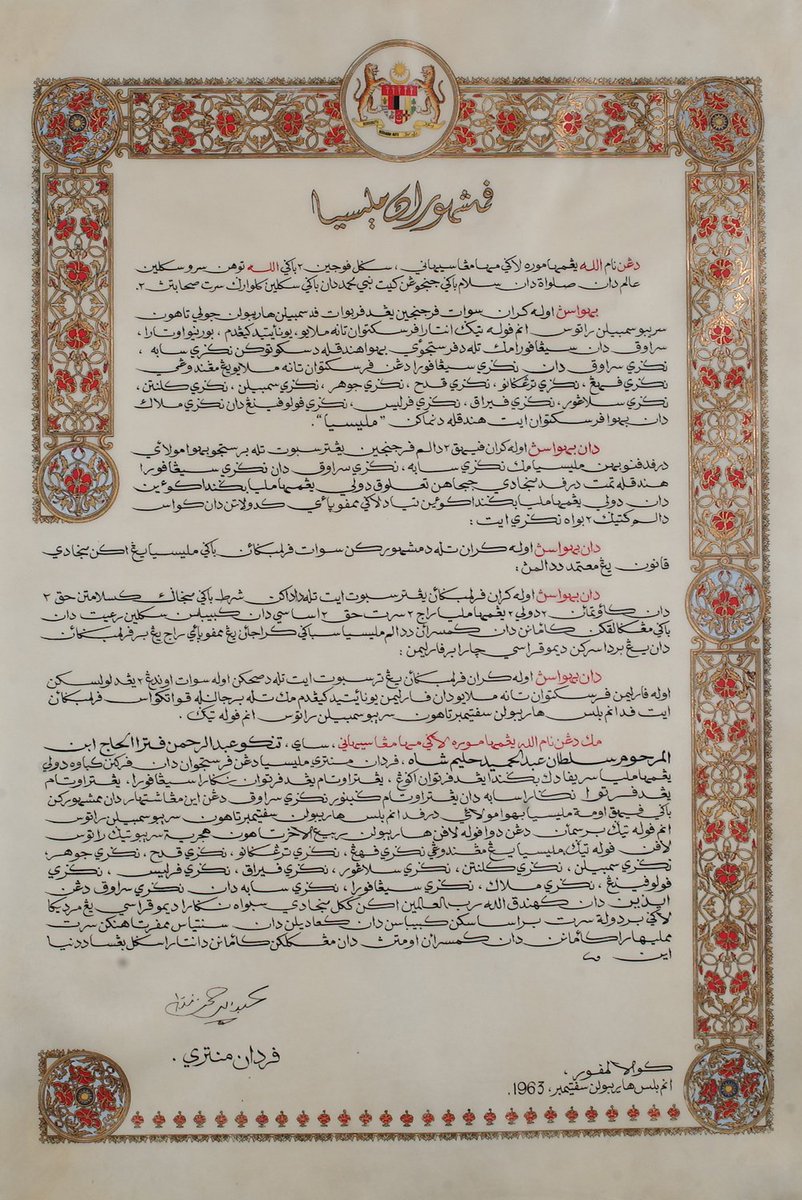 فشهوران مليسيا
دڠن نام الله يڠمها موره لاݢي مها مڠاسيهاني، سݢل فوجين٢ باݢي الله توهن سرو سکلين
عالم دان صلواة دان سلام باݢي جنجوڠن کيت نبي محمد دان باݢي سکلين کلوارݢ سرت صحابتڽ٢.
بهواسڽ اوله کران سوات فرجنجين يڠدفربوات فد سمبيلن هاريبولن جولاي تاهون
سريبو سمبيلن راتوس انم فوله تيݢ انتارا فرسکتوان تانه ملايو، يونايتيد کيڠدم، بورنيو اوتارا،
سراوق دان سيڠافورا مک تله دفرستجوي بهوا هندقله دسکوتوکن نݢري سابه،
نݢري سراوق دان نݢري سيڠافورا دڠن فرسکتوان تانه ملايو يڠ مڠندوڠي
نݢري فهڠ، نݢري ترڠݢانو، نݢري قدح، نݢري جوهر، نݢري سمبيلن، نݢري کلنتن،
نݢري سلاڠور، نݢري فيراق، نݢري فرليس، نݢري فولو فينڠ دان نݢري ملاک
دان بهوا فرسکتوان ايت هندقله دنماکن "مليسيا".
دان بهواسڽ اوله کران فيهق٢ دالم فرجنجين يڠترسبوت تله برستجو بهوا مولاي
درفد فنوبوهن مليسيا مک نݢري سابه، نݢري سراوق دان نݢري سيڠافورا
هندقله تمت درفد منجادي جاجهن تعلوق دولي يڠمها مليا بݢندا کوئين
دان دولي يڠمها مليا بݢندا کوئين تياد لاݢي ممفوڽاي کدولاتن دان کواس
دالم کتيݢ٢ بواه نݢري ايت:
دان بهواسڽ اوله کران تله دمشهورکن سوات فرلمبݢائن باݢي مليسيا يڠ اکن منجادي
قانون يڠ معتمد ددالمڽ:
دان بهواسڽ اوله کران فرلمبݢائن يڠترسبوت ايت تله داداکن شرط باݢي منجاݢ کسلامتن حق٢
دان کأوتمائن٢ دولي٢ يڠمها مليا راج٢ سرت حق٢ اساسي دان کبيبسن سکلين رعيت دان
باݢي مڠکالکن کأمانن دان کمعمورن ددالم مليسيا سباݢي کراجاءن يڠ ممفوڽاي راج يڠ برفرلمبݢائن
دان يڠ برداسرکن ديموقراسي چارا برفارليمن:
دان بهواسڽ اوله کران فرلمبݢائن يڠ ترسبوت ايت تله دصحکن اوله سوات اوندڠ٢ يڠدلولوسکن
اوله فارليمن فرسکتوان تانه ملايو دان فارليمن يونايتيد کيڠدم مک تله برجالنله قواتکواس فرلمبݢائن
ايت فد انم بلس هاريبولن سفتيمبر تاهون سريبو سمبيلن راتوس انم فوله تيݢ.
مک دڠن نام الله يڠمها موره لاݢي مها مڠاسيهاني، ساي، تنکو عبدالرحمن فترا الحاج ابن
المرحوم سلطان عبدالحميد حليم شاه، فردان منتري مليسيا دڠن فرستجوان دان فرکنن کباوه دولي
يڠمها مليا سري فدوک بݢندا يڠدفرتوان اݢوڠ، يڠترأوتام يڠدفرتوان نݢارا سيڠافورا، يڠترأوتام
يڠدفرتوا نݢارا سابه دان يڠترأوتام ݢبنور نݢري سراوق دڠن اين مڠاشتهار دان مشهورکن
باݢي فيهق اومة مليسيا بهوا مولاي درفد انم بلس هاريبولن سفتيمبر تاهون سريبو سمبيلن راتوس
انم فوله تيݢ برسمأن دڠن دوا فوله لافن هاريبولن ربيع الآخر تاهون هجرية سريبو تيݢ راتوس
لافن فوله تيݢ، مليسيا يڠ مڠندوڠي نݢري فهڠ، نݢري ترڠݢانو، نݢري قدح، نݢري جوهر،
نݢري سمبيلن، نݢري کلنتن، نݢري سلاڠور، نݢري فيراق، نݢري فرليس، نݢري
فولو فينڠ، نݢري ملاک، نݢري سيڠافورا، نݢري سابه دان نݢري سراوق دڠن
ايذين دان کهندق الله رب العالمين اکن ککل منجادي سبواه نݢارا ديموقراسي يڠ مرديک
لاݢي بردولة سرت براساسکن کبيبسن دان کعاديلن دان سنتياس ممفرتاهنکن سرت
ممليهارا کأمانن دان کمعمورن اومتڽ دان مڠکلکن کأمانن دانتارا سݢل بڠسا ددنيا
اين
فردان منتري.
کوالا لمفور،
انم بلس هاريبولن سفتيمبر، 1963.